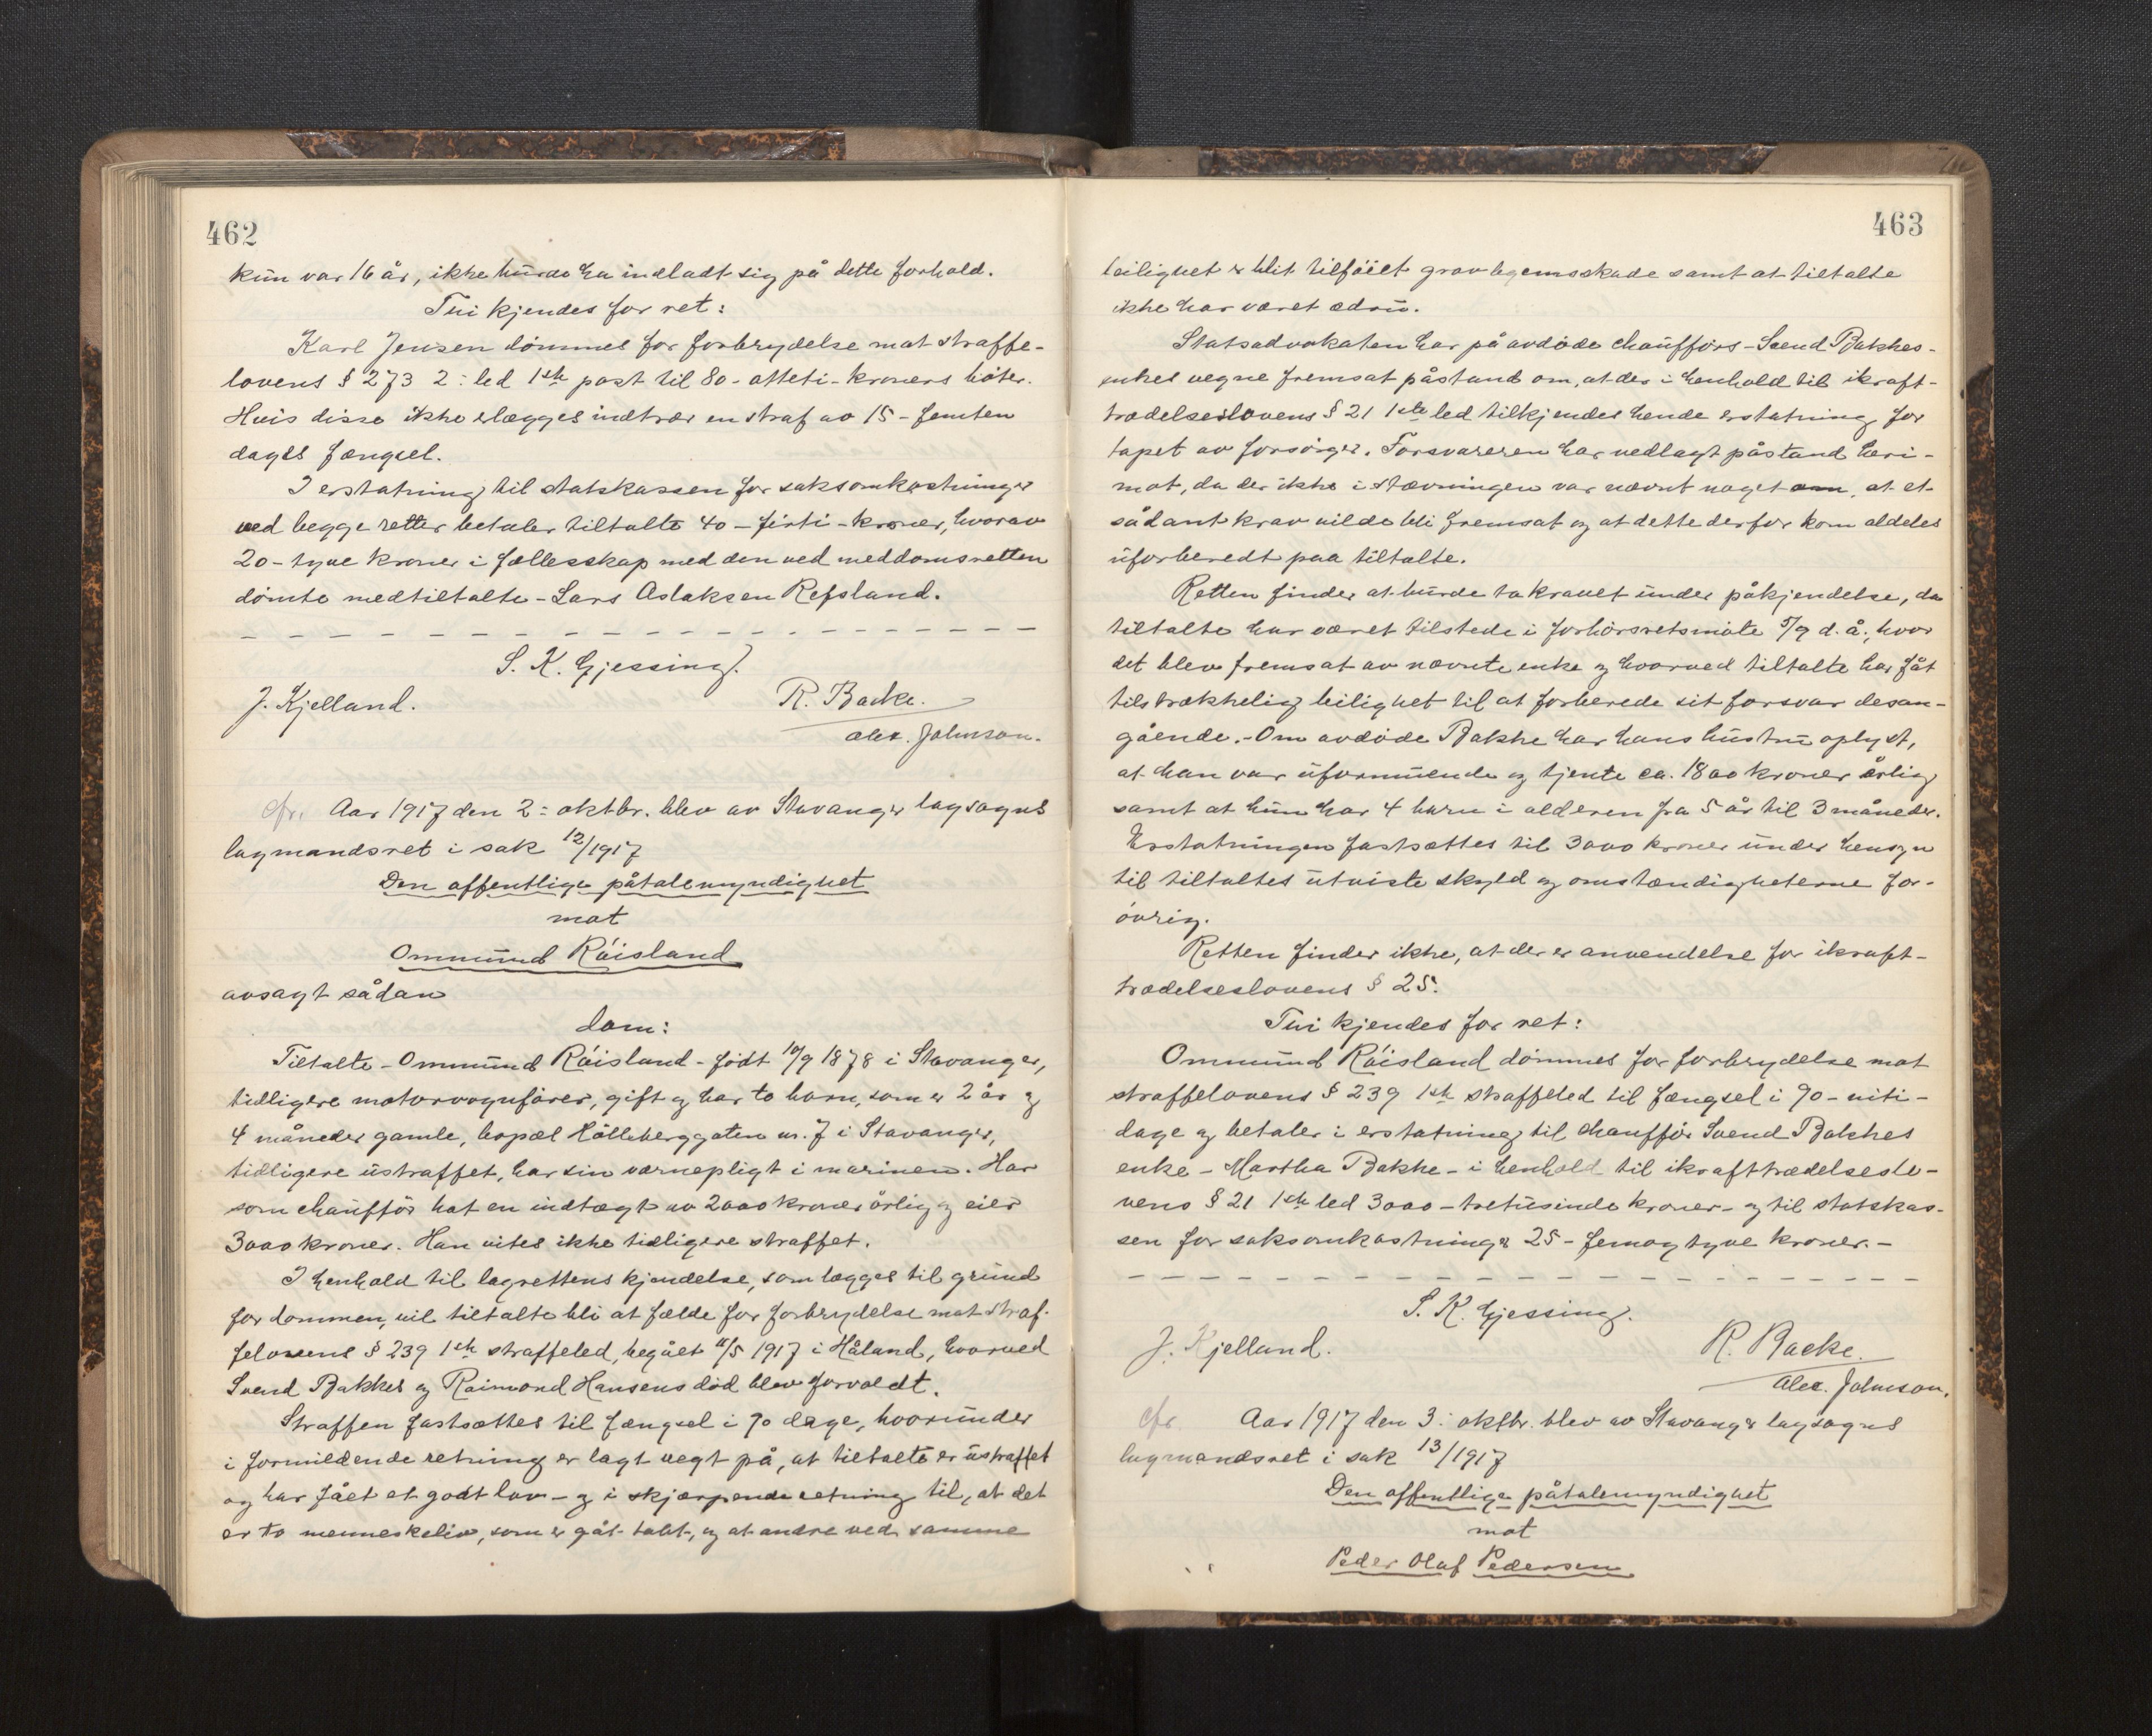 462
kun var 16 år, ikke burde ha indladt sig på dette forhold.
Tui kjendes for ret:
Karl Jensen dømmes for forbrydelse mot straffe-
lovens § 273 2: led 1ste post til 80 - otteti - kroners bøter.
Hvis disse ikke erlægges indtrær en straf av 15 - femten
dages fængsel.
I erstatning til statskassen for saksomkostninger
ved begge retter betaler tiltalte 40 - firti - kroner, hvorav
20 - tyve kroner i fællesskap med den ved meddomsretten
dømte medtiltalte - Lars Aslaksen Refsland.
S. K. Gjessing.
J. Kjelland. R. Backe.
Alex. Johnson.
cfr. Aar 1917 den 2: oktbr. blev av Stavanger lagsogns
lagmandsret i sak 12/1917
Den offentlige påtalemyndighet
mot
Ommund Røisland
avsagt sådan
dom:
Tiltalte - Ommund Røisland - født 10/9 1878 i Stavanger,
tidligere motorvognfører, gift og har to barn, som er 2 år og
4 måneder gamle, bopæl Hölleberggaten nr. 7 i Stavanger,
tidligere ustraffet, har sin værnepligt i marinen. Har
som chauffør hat en indtægt av 2000 kroner årlig og eier
3000 kroner. Han vites ikke tidligere straffet.
I henhold til lagrettens kjendelse, som lægges til grund
for dommen, vil tiltalte bli at fælde for forbrydelse mot straf-
felovens § 239 1ste straffeled, begået 11/5 1917 i Håland, hvorved
Svend Bakkes og Raimond Hansens død blev forvoldt.
Straffen fastsættes til fængsel i 90 dage, hvorunder
i formildende retning er lagt vegt på, at tiltalte er ustraffet
og har fået et godt lov - og i skjærpende retning til, at det
er to menneskeliv, som er gåt tabt, og at andre ved samme
463
leilighet er blit tilføiet grov legemsskade samt at tiltalte
ikke har været ædru.
Statsadvokaten har på avdøde chaufførs - Svend Bakkes -
enkes vegne fremsat påstand om, at der i henhold til ikraft-
trædelseslovens § 21 1ste led tilkjendes hende erstatning for
tapet av forsørger. Forsvareren har nedlagt påstand heri-
mot, da der ikke i stævningen var nævnt noget om, at et
sådant krav vilde bli fremsat og at dette derfor kom aldeles
uforberedt paa tiltalte.
Retten finder at burde ta kravet under påkjendelse, da
tiltalte har været tilstede i forhørsretsmøte 5/9 d. å., hvor
det blev fremsat av nævnte enke og hvorved tiltalte har fåt
tilstrækkelig leilighet til at forberede sit forsvar desan-
gående. - Om avdøde Bakke har hans hustru oplyst,
at han var uformuende og tjente ca. 1800 kroner årlig
samt at hun har 4 barn i alderen fra 5 år til 3 måneder.
Erstatningen fastsættes til 3000 kroner under hensyn
til tiltaltes utviste skyld og omstændigheterne for-
øvrig.
Retten finder ikke, at der er anvendelse for ikraft-
trædelseslovens § 25.
Tui kjendes for ret:
Ommund Røisland dømmes for forbrydelse mot
straffelovens § 239 1ste straffeled til fængsel i 90 - niti -
dage og betaler i erstatning til chauffør Svend Bakkes
enke - Martha Bakke - i henhold til ikrafttrædelseslo-
vens § 21 1ste led 3000 - tretusinde kroner - og til statskas-
sen for saksomkostninger 25 - femogtyve kroner. -
S. K. Gjessing.
J. Kjelland. R. Backe.
Alex. Johnson.
cfr. Aar 1917 den 3: oktbr. blev av Stavanger lagsogns
lagmandsret i sak 13/1917
Den offentlige påtalemyndighet
mot
Peder Olaf Pedersen